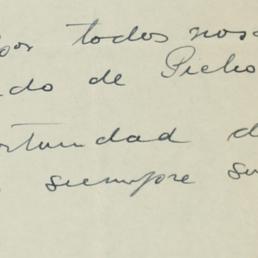 por todos nos
do de Picho
ortunidad d
siempre su